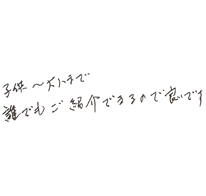 子供～大人まで
誰でもご紹介できるので良いです